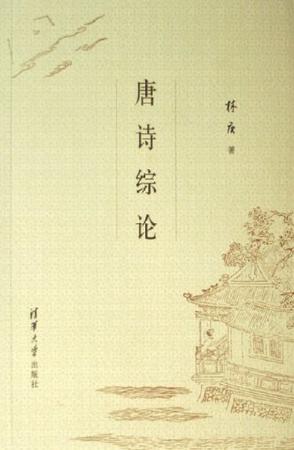 唐诗综论
林庚 著
清华大学出版社